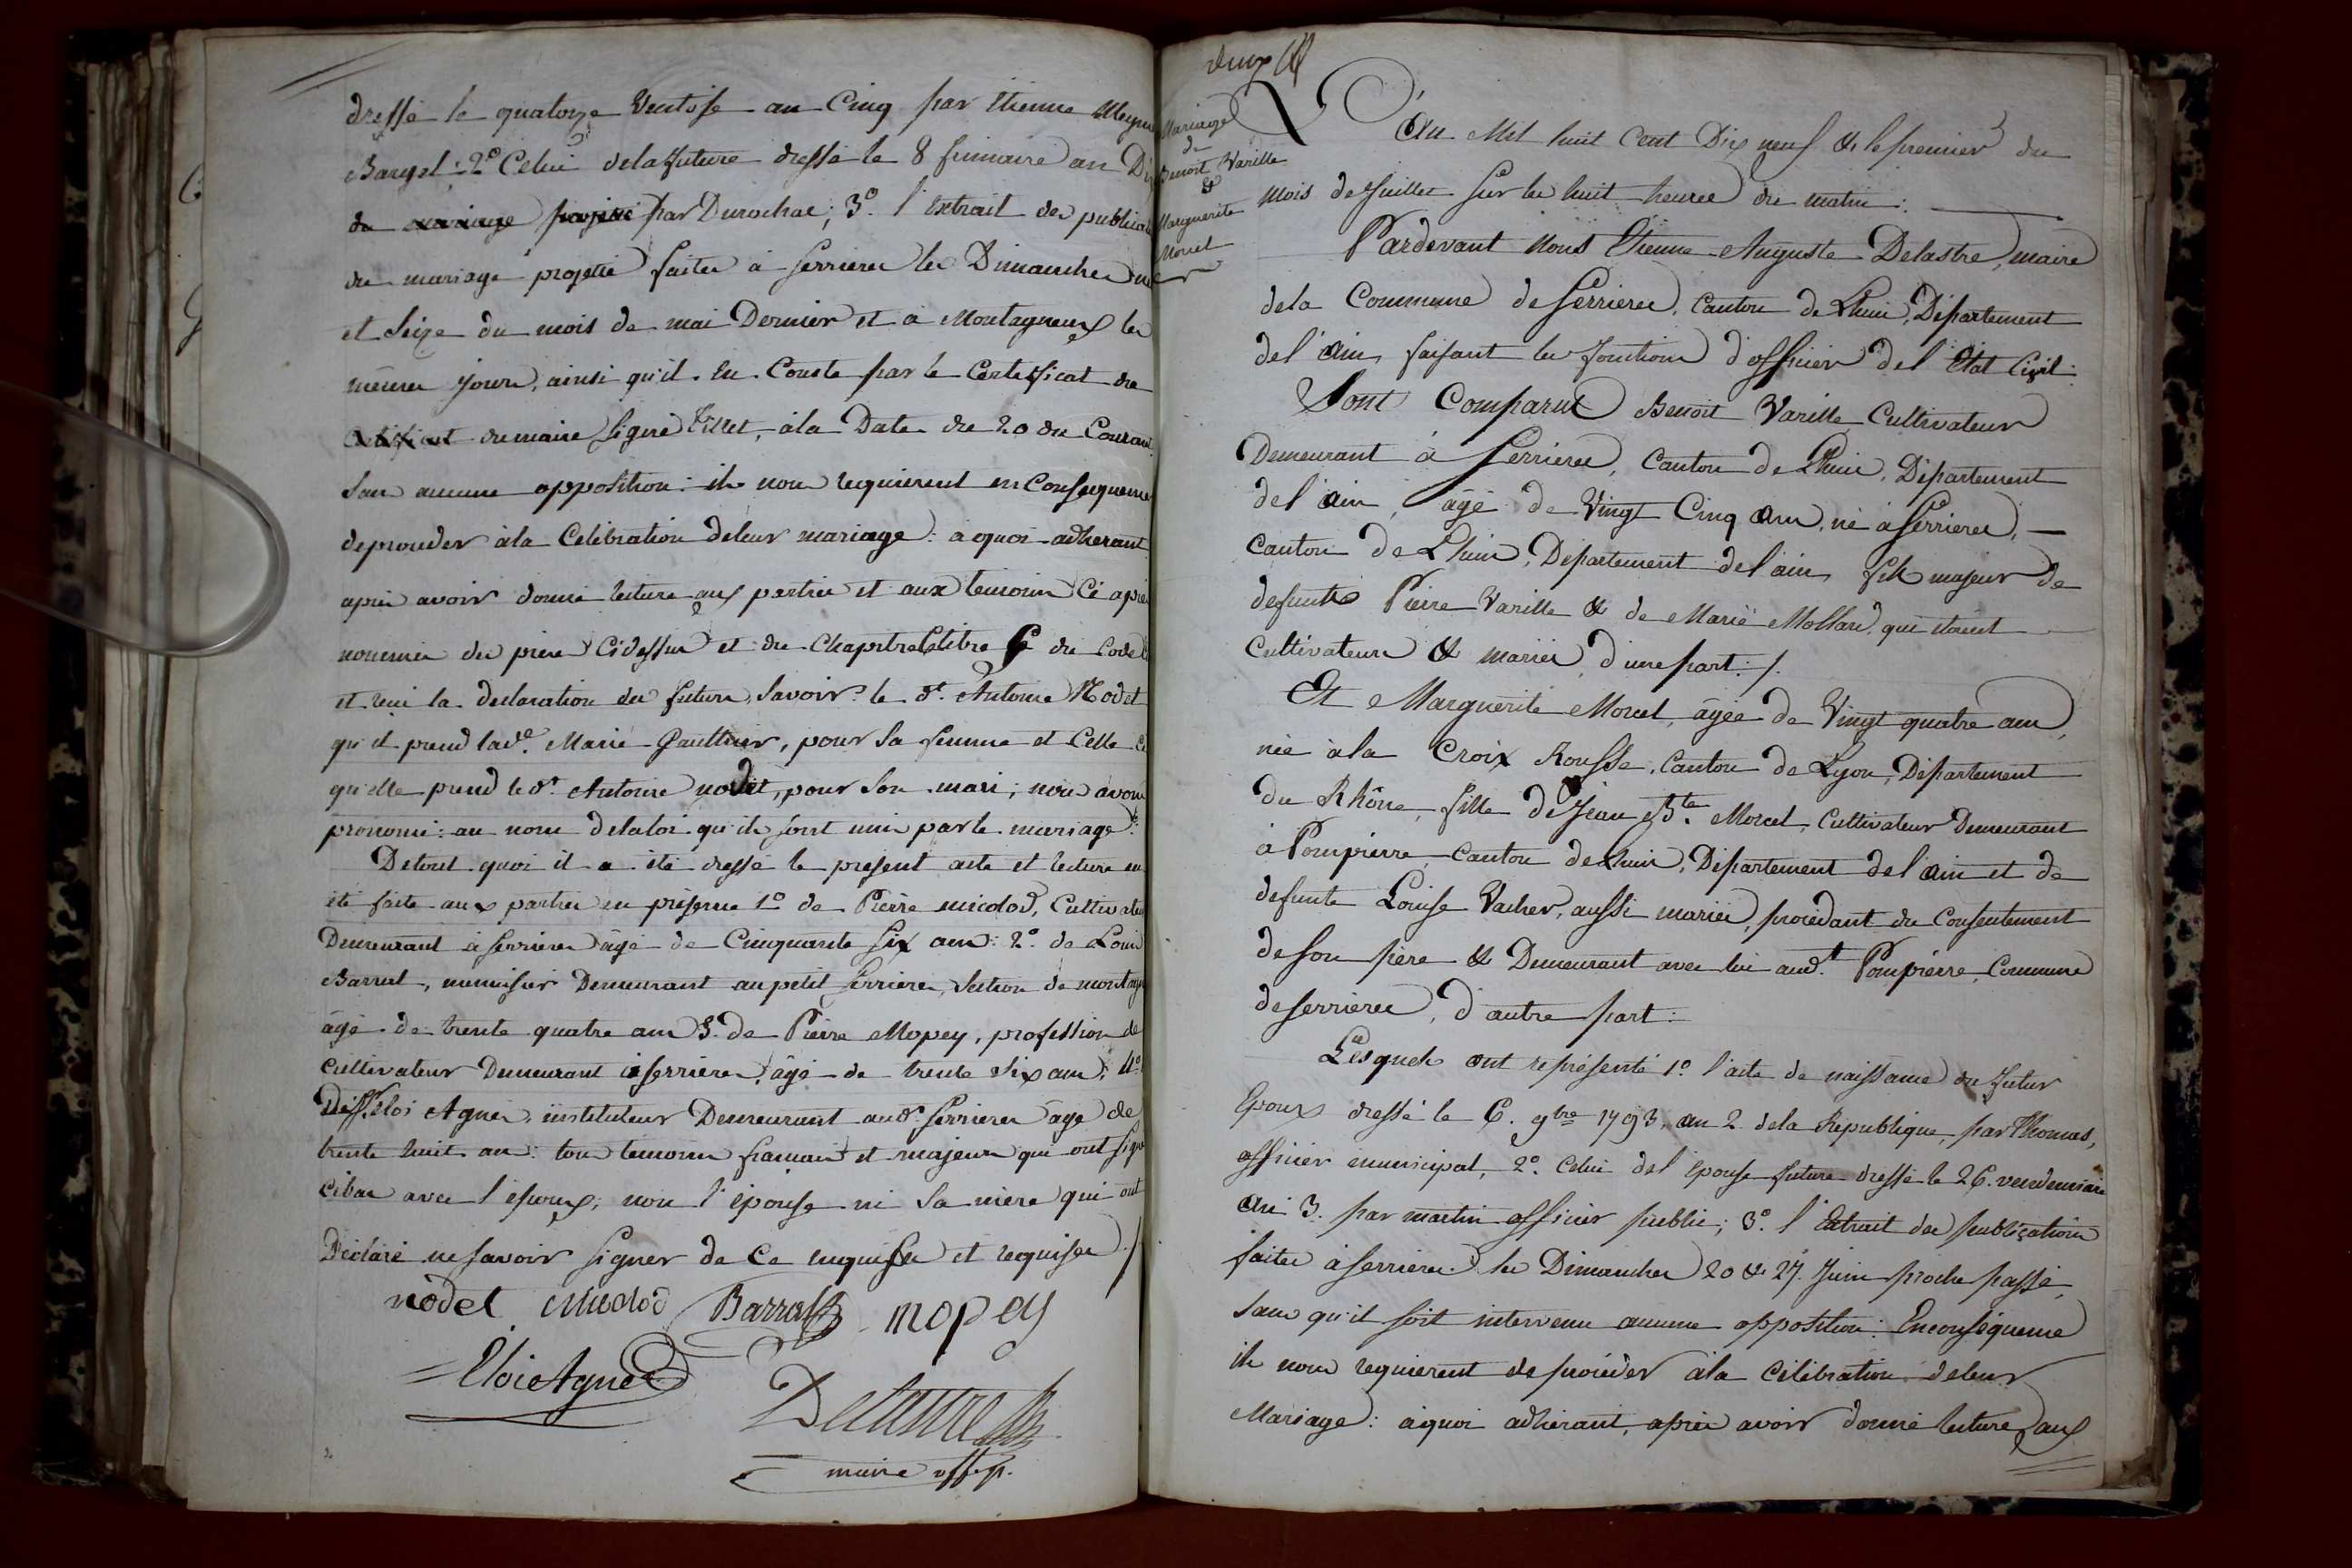 dressé le quatorze Ventose an Cinq par Etienne
Bargel: 2° Celui dela future dressé le 8 frimaire an
du mariage projeté par Durochat; 3°. l'extrait des
de mariage projetté faites à Serrieres les Dimanches
et Seize du mois de mai Dernier et à Montagneux les
mêmes jours, ainsi qu'il En Conste par le Certificat de
Certificat du maire signé tillet, à la Date du 20 du Courant
sans aucune opposition: ils nous requierent en Consequence
deproceder àla Celebration deleur mariage: a quoi adherant
après avoir donné lecture aux parties et aux temoins Ci après
nommés des pieces Cidessus et du Chapitre titre du Code
et reçu la declaration des futurs, Savoir: le dt. Antoine Nodet
qu'il prend lade. Marie Gaulthier, pour Sa femme et Celle
qu'elle prend le dt. Antoine nodet, pour Son mari; nous avons
prononcé: au nom delaloi qu'ils sont unis par le mariage:
Detout quoi il a été dressé le present acte et lecture en
été faite aux parties en présence 1° de Pierre micolod, Cultivateur
Demeurant à Serrieres âgé de Cinquante Six ans: 2°. de Louis
Barral, menuisier Demeurant au petit Serrieres, Section de
âgé de trente quatre ans 3. de Pierre Mopey, profession de
Cultivateur Demeurant à Serrieres, âgé de trente Six ans; 4°.
Eloi Agnès, instituteur Demeurant audt. Serrieres âgé de
trente huit ans: tous temoins français et majeurs qui ont
cibas avec l'époux; non l'épouse ni Sa mère qui ont
Déclaré ne savoir signer de Ce enquises et requises./
nodet Micolod Barral mopey
Eloi Agnès
Delastre
maire off. p.
deux
Mariage
de
Benoit Varille
&
Marguerite
Morcel
L'An Mil huit Cent Dix neuf & le premier du
mois de Juillet sur les huit heures du matin:
Pardevant Nous Etienne Auguste Delastre, maire
dela Commune de Serrieres, Canton de Lhuis, Département
del'ain faisant les fonctions d'officier del'Etat Civil:
Sont Comparus Benoit Varille Cultivateur
Demeurant à Serrieres, Canton de Lhuis, Département
del'ain, âgé de Vingt Cinq ans, né à Serrieres,
Canton de Lhuis, Département del'ain fils majeur de
defunts Pierre Varille & de Marie Mollard, qui étaient
Cultivateurs & mariés, d'une part: /.
Et Marguerite Morcel, âgée de Vingt quatre ans,
née àla Croix Rousse, Canton de Lyon, Département
du Rhône, fille de Jean Bte. Morcel, Cultivateur Demeurant
à Pompierre Canton de Lhuis, Département del'ain et de
defunte Louise Vacher, aussi mariés, procedant du Consentement
de son père & Demeurant avec lui audt. Pompierre, Commune
de Serrieres, d'autre part:
Lesquels ont représenté 1°. l'acte de naissance du futur
Epoux dressé le 6. 9bre 1793. an 2. dela République, par Thomas,
officier municipal, 2°. Celui del'épouse future dressé le 26. vendemiaire
an 3. par martin officier public; 3°. l'Extrait des publications
faites à Serrieres les Dimanches 20 & 27. Juin proche passé,
Sans qu'il soit intervenu aucune opposition: Enconséquence
ils nous requierent de procéder àla Célébration deleur
Mariage: à quoi adhérant, après avoir donné lecture aux